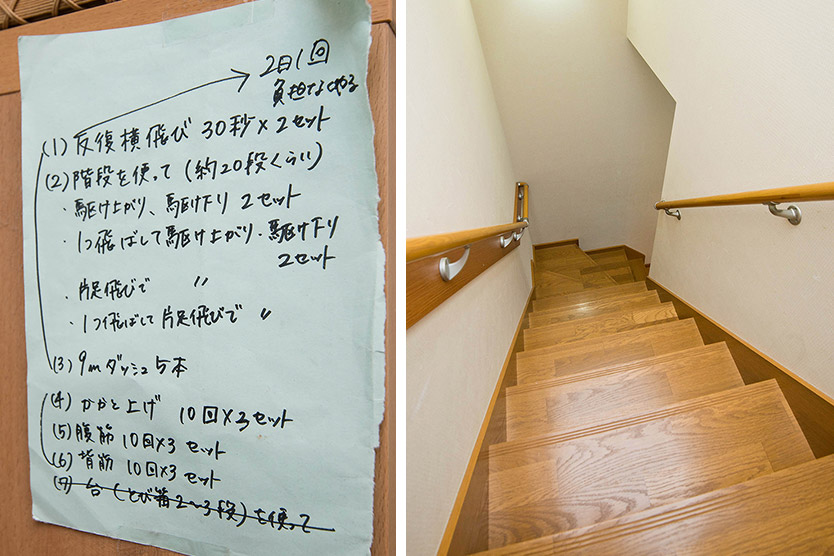 2日1回
負担なくやる
(1) 反復横飛び 30秒×2セット
(2) 階段を使って (約20段くらい)
・駆け上がり、駆け下り 2セット
・1つ飛ばして駆け上がり・駆け下り
2セット
・片足飛びで 〃
・1つ飛ばして片足飛びで 〃
(3) 9mダッシュ 5本
(4) かかと上げ 10回×3セット
(5) 腹筋 10回×3セット
(6) 背筋 10回×3セット
(7) 台 (とび箱2〜3段) を使って